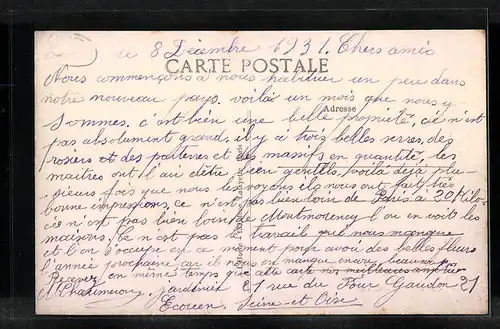 ce 8 Décembre 1931. Chers amis
CARTE POSTALE
Nous commençons à nous habituer un peu dans
notre nouveau pays. voilà un mois que nous y
Adresse
sommes. c'est bien une belle propriété, ce n'est
pas absolument grand, il y a trois belles serres, des
rosiers et des parterres et des massifs en quantité, les
maitres ont l'air d'être bien gentils, voilà déjà plu-
sieurs fois que nous les voyons ils nous ont fait très
bonne impressions, ce n'est pas bien loin de Paris à 20 Kilo-
ce n'est pas bien loin de Montmorency l'on en voit les
maisons. Ce n'est pas le travail qui nous manque
et l'on s'occupe en ce moment pour avoir des belles fleurs
l'année prochaine car il nous en manque encore beaucoup
Recevez en même temps que cette carte nos meilleures
jardinier 21 rue du Four Gaudon 21
Ecouen, Seine-et-Oise